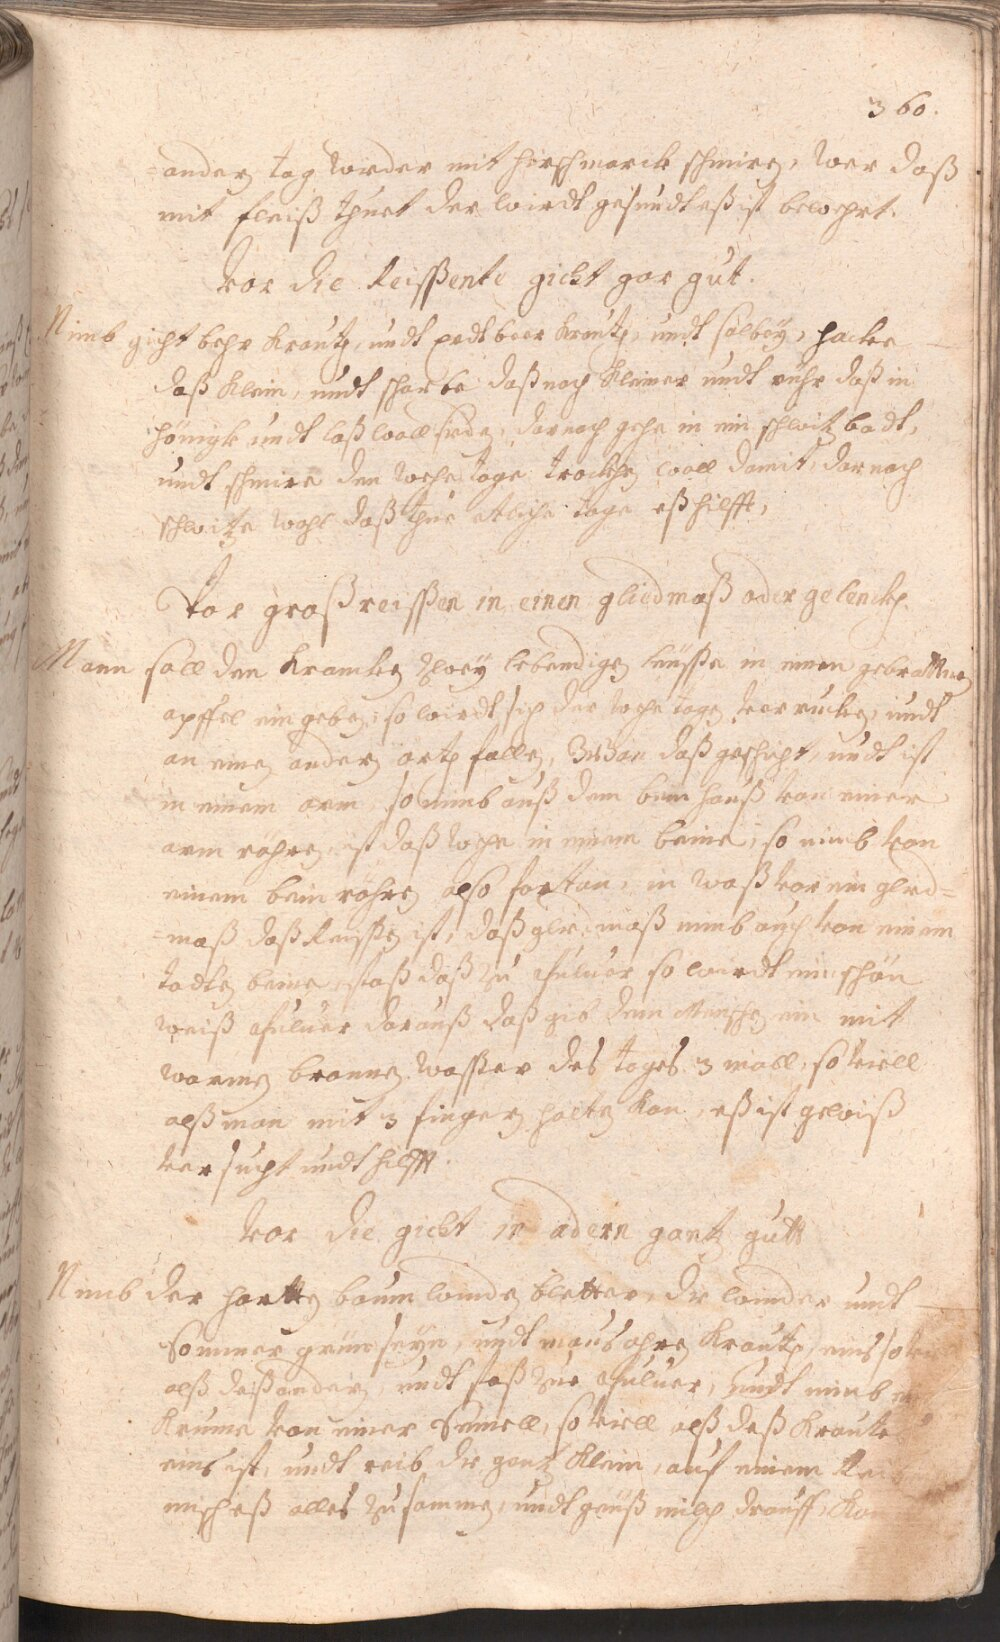 360.
andern tag worder mit hirschmarck schmiren, wer daß
mit fleiß thuet der wirdt gesundt eß ist bewehrt.
vor die Reissente gicht gar gut.
Nimb gicht behr Krautz, undt erdt beer Krautz, undt salbey, hacke
daß Klein, undt scharbe daß noch Kleiner undt rühr daß in
hönigk undt laß woll sieden, darnach gehe in ein schwitz badt,
undt schmire den wehetage trocken woll damit, darnach
schwitze wohl daß thue etliche tage eß hilfft,
Vor groß reissen in einen gliedmaß oder gelenck.
Mann soll den Krancken zwey lebendigen leüsse in einen gebrattnen
apffel ein geben, so wirdt sich der wehetagen verrucken, undt
an einen andern ortt fallen, wan daß geschicht, undt ist
in einem arm, so nimb auß dem bein hauß von einer
arm röhren, ist daß wehe in einem beine, so nimb von
einem bein röhren also forttan, in waß vor ein glied=
=maß daß Reissen ist, daß gliedmaß nimb auch von einem
todten beine, stoß daß zu pulver so wirdt ein schön
weiß pulver darauß daß gib dem Menschen ein mit
warmen brannen wasser des tages 3 mall, so viell
alß man mit 3 fingern halten Kan, eß ist gewiß
versucht undt hilfft.
vor die gicht in adern gantz gutt
Nimb der hartten baum winden bletter, die winder undt
Sommer grün seyn, undt maus ohren Krautt, eins so
alß daß ander, undt stoß zue pulver, undt nimb
Krume von einer Semell, so viell alß deß Krautes
eins ist, undt reib die gantz Klein, auf einem
misch eß alles zusammen, undt geüß milch drauff,